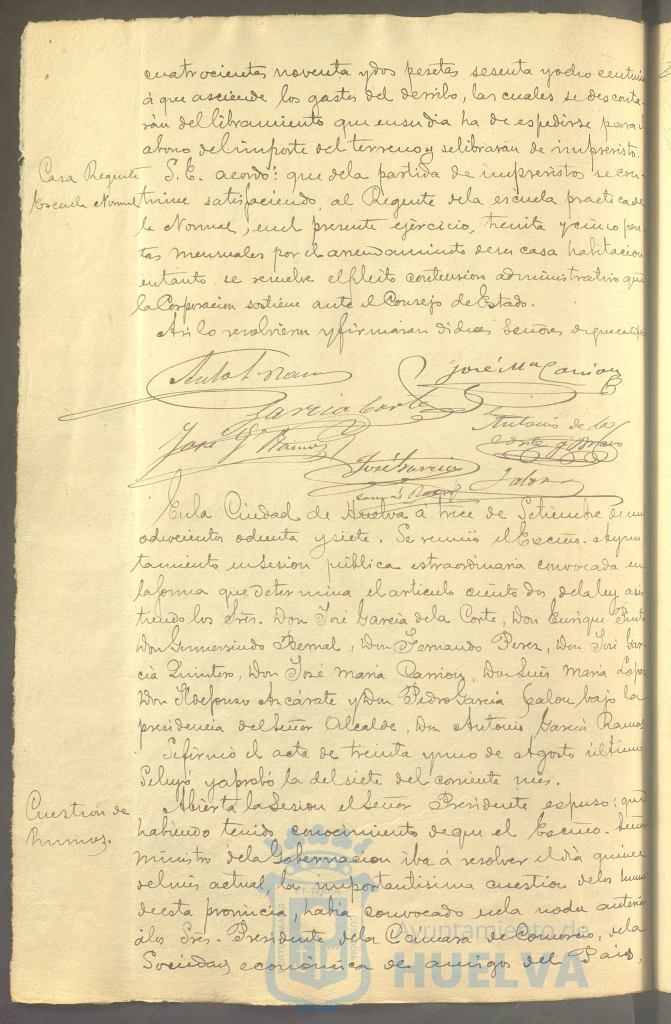 cuatrocientas noventa y dos pesetas sesenta y ocho centimos
á que asciende los gastos del derribo, las cuales se desconta-
rán del libramiento que en su dia ha de espedirse para
abono del importe del terreno y se librarán de imprevistos.
Casa Regente
Escuela Normal
S. E. acordó: que de la partida de imprevistos se con-
tinue satisfaciendo, al Regente de la escuela practica de
la Normal, en el presente ejercicio, treinta y cinco pese-
tas mensuales por el arrendamiento de su casa habitacion
en tanto se resuelve el pleito contencioso administrativo que
la Corporacion sostiene ante el Consejo de Estado.
Asi lo resolvieron y firmaran dichos Señores de que certifico
Anto G. Ramos
José Mª Carrion
Garcia Corte
José G. Ramos
Antonio de la
Corte y
José Garcia
Jalon
En la Ciudad de Huelva á trece de Setiembre de mil
ochocientos ochenta y siete. Se reunió el Excmo. Ayun-
tamiento en Sesion pública estraordinaria convocada en
la forma que determina el articulo ciento dos de la ley, asis-
tiendo los Sres. Don José Garcia de la Corte, Don Enrique
Don Gumersindo Bernal, Don Fernando Perez, Don José Gar-
cia Quintero, Don José Maria Carrion, Don Luis Maria Lopez
Don Ildefonso Azcárate y Don Pedro Garcia Jalon bajo la
presidencia del Señor Alcalde, Don Antonio Garcia Ramos
Se firmó el acta de treinta y uno de Agosto último
Se leyó y aprobó la del siete del corriente mes.
Cuestion de
humos.
Abierta la Sesion el Señor Presidente espuso: que
habiendo tenido conocimiento de que el Excmo. Señor
Ministro de la Gobernacion iba á resolver el dia quince
del mes actual, la importantisima cuestion de los humos
de esta provincia, habia convocado en la noche anterior
á los Sres. Presidente de la Cámara de Comercio, de la
Sociedad económica de amigos del Pais,
Ayuntamiento de
HUELVA